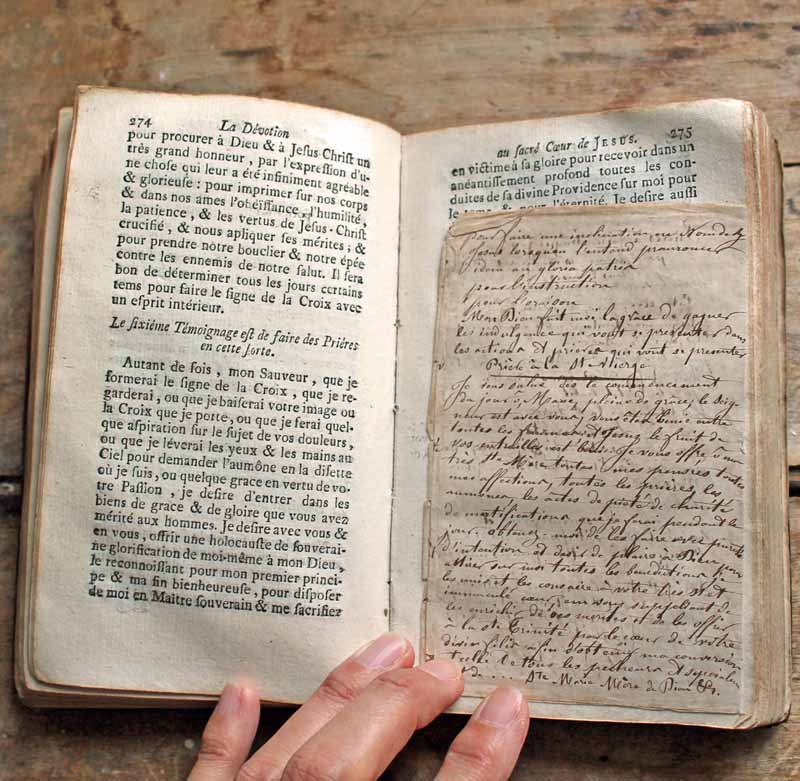 274 La Dévotion
pour procurer à Dieu & à Jeſus-Chriſt un
très grand honneur, par l'expreſſion d'u-
ne choſe qui leur a été infiniment agréable
& glorieuſe : pour imprimer ſur nos corps
& dans nos ames l'obéiſſance, l'humilité,
la patience, & les vertus de Jeſus-Chriſt
crucifié, & nous apliquer ſes mérites ; &
pour prendre nôtre bouclier & nôtre épée
contre les ennemis de notre ſalut. Il ſera
bon de déterminer tous les jours certains
tems pour faire le ſigne de la Croix avec
un eſprit intérieur.
Le ſixiéme Témoignage eſt de faire des Priéres
en cette ſorte.
Autant de fois, mon Sauveur, que je
formerai le ſigne de la Croix, que je re-
garderai, ou que je baiſerai votre image ou
la Croix que je porte, ou que je ferai quel-
que aſpiration ſur le ſujet de vos douleurs,
ou que je léverai les yeux & les mains au
Ciel pour demander l'aumône en la diſette
où je ſuis, ou quelque grace en vertu de vo-
tre Paſſion, je deſire d'entrer dans les
biens de grace & de gloire que vous avez
mérité aux hommes. Je deſire avec vous &
en vous, offrir une holocauſte de ſouverai-
ne glorification de moi-même à mon Dieu,
le reconnoiſſant pour mon premier princi-
pe & ma fin bienheureuſe, pour diſpoſer
de moi en Maître ſouverain & me ſacrifier
au ſacré Cœur de JESUS. 275
en victime à ſa gloire pour recevoir dans un
anéantiſſement profond toutes les con-
duites de ſa divine Providence ſur moi pour
le tems & pour l'éternité. Je deſire auſſi
pour faire une inclination au Nom de
Jesus lorsque l'entend prononcer
idem au gloria patria
pour l'instruction
pour l'oraison
Mon Dieu fait moi la grace de gagner
les indulgence qui vont se presenter dans
les actions et prieres qui vont se presenter
Priere à la Ste Vierge
Je vous salue dès le commencement
du jour ô Marie, pleine de grace, le Seig-
neur est avec vous, vous êtes benie entre
toutes les femmes et Jesus le fruit de
vos entrailles est beni. Je vous offre ô ma
très Ste Mere toutes mes pensees toutes
mes affections, toutes les prières, les
les actes de pieté de charité
de mortifications que je ferai pendant le
jour, obtenez moi de les faire avec pureté
d'intention et desir de plaire à Dieu pour
attirer sur moi toutes les benedictions je
les unis et les consacre à votre très St et
immaculé cœur, en vous suppliant de
les enrichir de ses merites et de les offrir
à la Ste Trinité par le cœur de votre
divin fils afin d'obtenir ma conversion
celle de tous les pecheurs et
de ... Ste Marie Mère de Dieu &c.